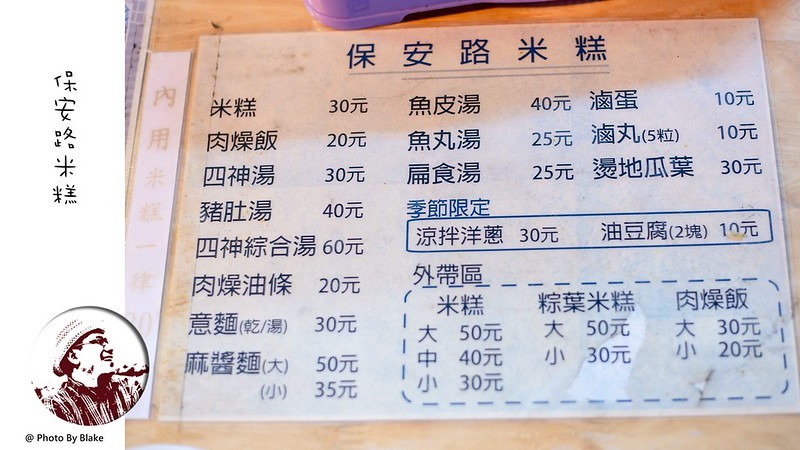 保安路米糕
內用米糕一律30
保安路米糕
米糕 30元
肉燥飯 20元
四神湯 30元
豬肚湯 40元
四神綜合湯 60元
肉燥油條 20元
意麵(乾/湯) 30元
麻醬麵(大) 50元
(小) 35元
魚皮湯 40元
魚丸湯 25元
扁食湯 25元
滷蛋 10元
滷丸(5粒) 10元
燙地瓜葉 30元
季節限定
涼拌洋蔥 30元 油豆腐(2塊) 10元
外帶區
米糕
大 50元
中 40元
小 30元
粽葉米糕
大 50元
小 30元
肉燥飯
大 30元
小 20元
@ Photo By Blake